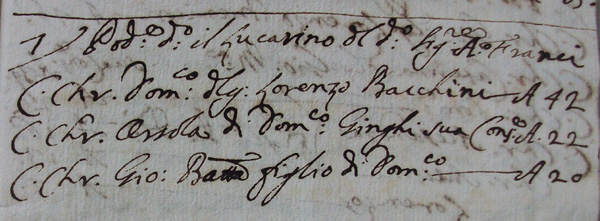 7 Pod:e d:o il Lucarino del d:o Sig:re A:o Franci
C. Chr. Dom:co del q: Lorenzo Bacchini — A 42
C. Chr. Orsola di Dom:co Ginghi sua Cons:e A. 22
C. Chr. Gio: Batta figlio di Dom:co — A 20